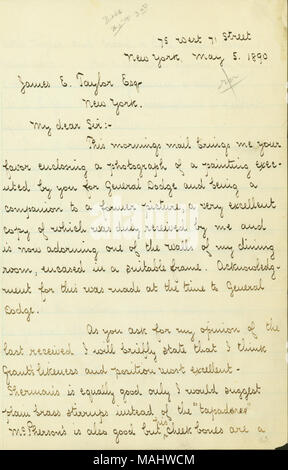 75 West 71 Street
New York, May 5. 1890
James E. Taylor Esq-
New York.
My dear Sir:-
This mornings mail brings me your
favor enclosing a photograph of a painting exec-
uted by you for General Dodge and being a
companion to a former picture, a very excellent
copy of which was duly received by me and
is now adorning one of the walls of my dining
room, encased in a suitable frame. Acknowledg-
ment for this was made at the time to General
Dodge.
As you ask for my opinion of the
last received I will briefly state that I think
Grants likeness and position most excellent-
Sherman's is equally good only I would suggest
plain brass stirrups instead of the "tapaderos"
McPherson's is also good but his cheek bones are a
alamy
Image ID: MAHWCM
www.alamy.com